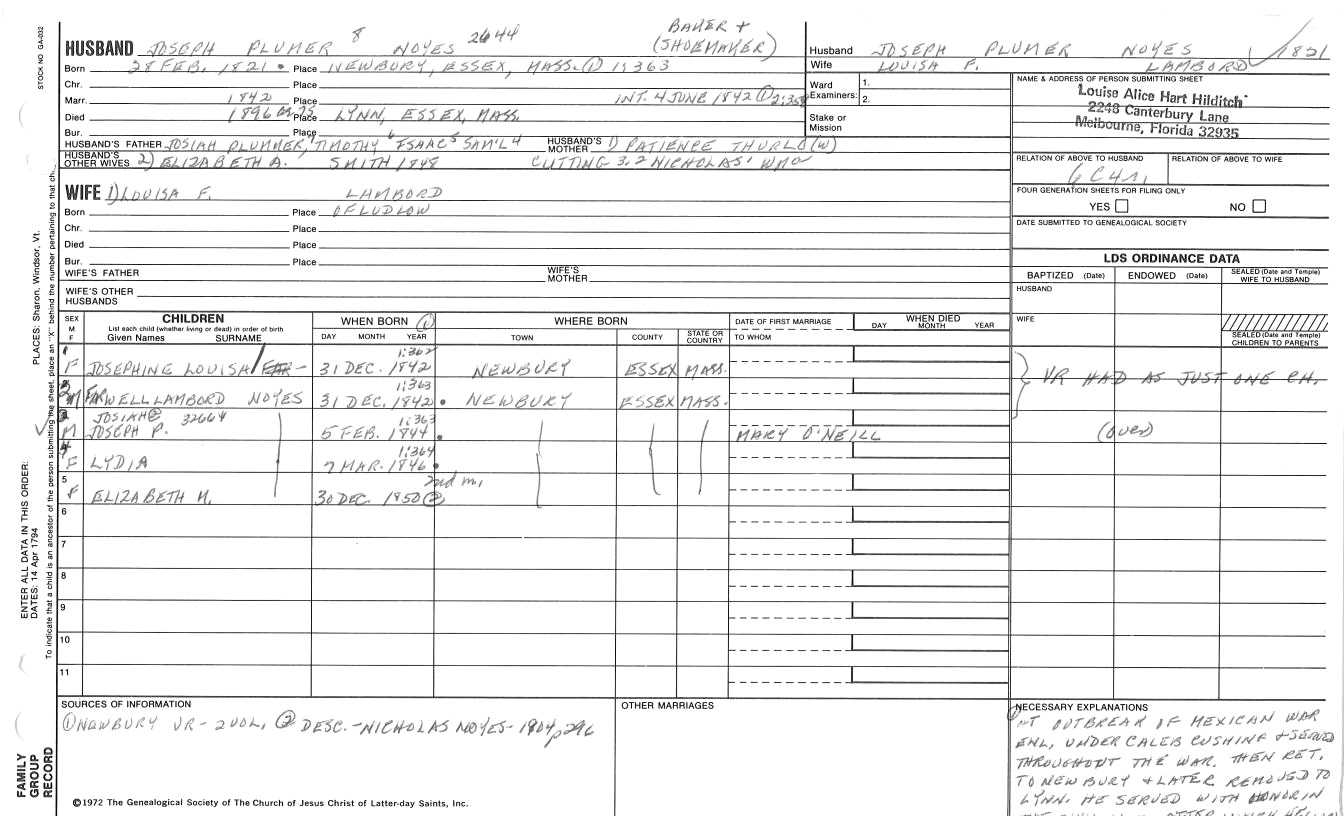 STOCK NO. GA-002
BAKER +
(SHOEMAKER)
HUSBAND JOSEPH PLUMER 8 NOYES 2644
Born 28 FEB. 1821 Place NEWBURY, ESSEX, MASS. ① 1:363
Chr. Place
Marr. 1842 Place INT. 4 JUNE 1842 ① 2:358
Died 1896 Place LYNN, ESSEX, MASS.
Bur. Place
HUSBAND'S FATHER JOSIAH PLUMMER, 7 TIMOTHY 6 ISAAC 5 SAM'L 4 HUSBAND'S MOTHER 1) PATIENCE THURLO (W)
HUSBAND'S OTHER WIVES 2) ELIZABETH A. SMITH 1848 CUTTING 3, 2 NICHOLAS'
Husband JOSEPH PLUMER NOYES 1821
Wife LOUISA F. LAMBORD
Ward Examiners: 1.
2.
Stake or Mission
NAME & ADDRESS OF PERSON SUBMITTING SHEET
Louise Alice Hart Hilditch
2248 Canterbury Lane
Melbourne, Florida 32935
RELATION OF ABOVE TO HUSBAND RELATION OF ABOVE TO WIFE
6C4R,
FOUR GENERATION SHEETS FOR FILING ONLY
YES NO
DATE SUBMITTED TO GENEALOGICAL SOCIETY
WIFE 1) LOUISA F. LAMBORD
Born Place OF LUDLOW
Chr. Place
Died Place
Bur. Place
WIFE'S FATHER WIFE'S MOTHER
WIFE'S OTHER HUSBANDS
LDS ORDINANCE DATA
BAPTIZED (Date) ENDOWED (Date) SEALED (Date and Temple) WIFE TO HUSBAND
HUSBAND
WIFE
SEALED (Date and Temple) CHILDREN TO PARENTS
SEX M F CHILDREN WHEN BORN ① WHERE BORN DATE OF FIRST MARRIAGE WHEN DIED
List each child (whether living or dead) in order of birth
Given Names SURNAME DAY MONTH YEAR TOWN COUNTY STATE OR COUNTRY TO WHOM DAY MONTH YEAR
1 1:362
F JOSEPHINE LOUISA 31 DEC. 1842 NEWBURY ESSEX MASS. VR HAD AS JUST ONE CH.
1:363
M FARWELL LAMBORD NOYES 31 DEC. 1842 NEWBURY ESSEX MASS.
JOSIAH ② 32664 1:363
M JOSEPH P. 5 FEB. 1844 MARY O'NEILL (OVER)
4 1:364
F LYDIA 7 MAR. 1846
5 2nd m,
F ELIZABETH M. 30 DEC. 1850 ②
6
7
8
9
10
11
PLACES: Sharon, Windsor, Vt.
ENTER ALL DATA IN THIS ORDER:
DATES: 14 Apr 1794
To indicate that a child is an ancestor of the person submitting the sheet, place an "X" behind the number pertaining to that ch
FAMILY GROUP RECORD
SOURCES OF INFORMATION
① NEWBURY VR - 2 VOL, ② DESC. - NICHOLAS NOYES - 1904, p296
OTHER MARRIAGES
NECESSARY EXPLANATIONS
OUTBREAK OF MEXICAN WAR
ENL, UNDER CALEB CUSHING + SERVED
THROUGHOUT THE WAR. THEN RET.
TO NEWBURY + LATER REMOVED TO
LYNN. HE SERVED WITH HONOR IN
©1972 The Genealogical Society of The Church of Jesus Christ of Latter-day Saints, Inc.